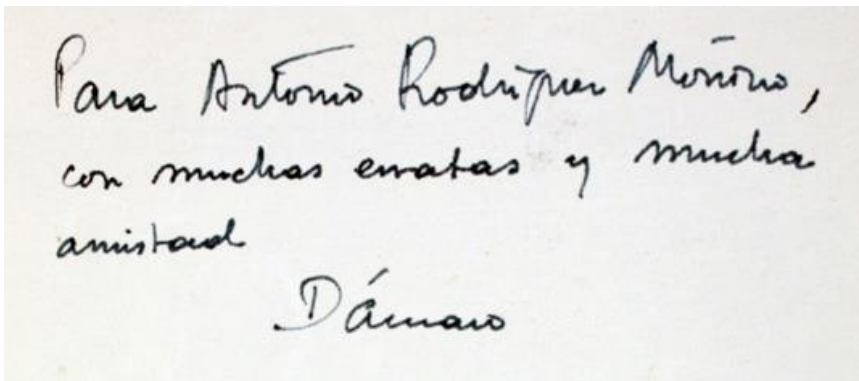 Para Antonio Rodríguez Moñino,
con muchas erratas y mucha
amistad
Dámaso